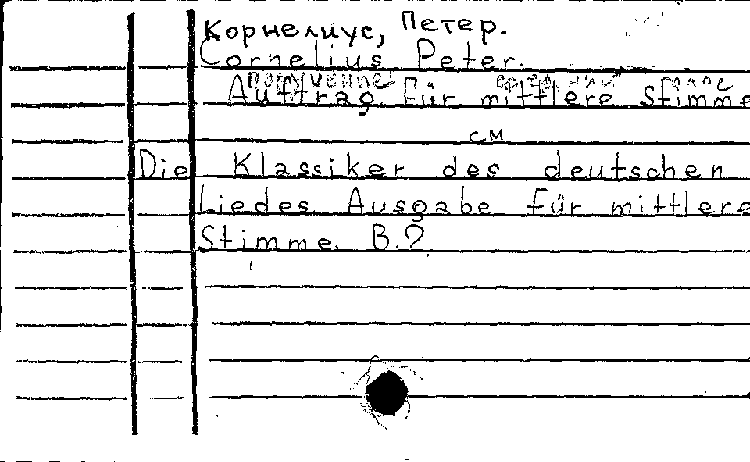 Корнелиус, Петер.
Cornelius Peter.
Auftrag. Für mittlere Stimme
см
Die Klassiker des deutschen
Liedes Ausgabe für mittlere
Stimme. B.2